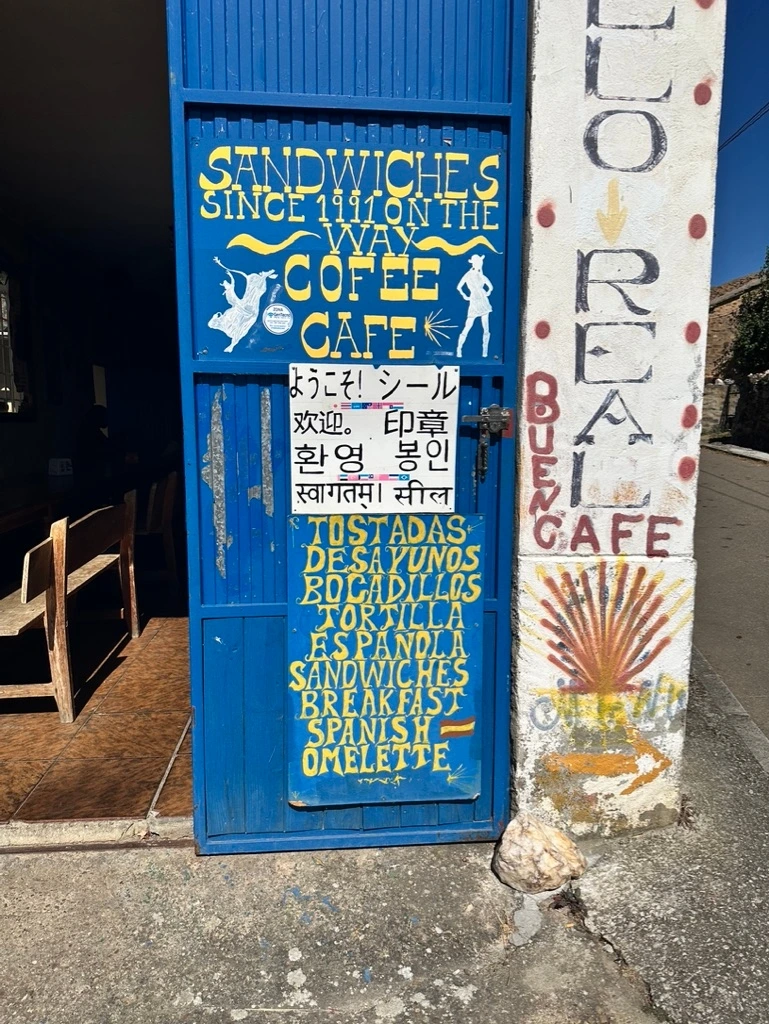 SANDWICHES
SINCE 1991 ON THE
WAY
COFEE
CAFE
ようこそ! シール
欢迎。 印章
환영 봉인
स्वागतम्। सील
TOSTADAS
DESAYUNOS
BOCADILLOS
TORTILLA
ESPAÑOLA
SANDWICHES
BREAKFAST
SPANISH
OMELETTE
LO
REAL
BUEN
CAFE